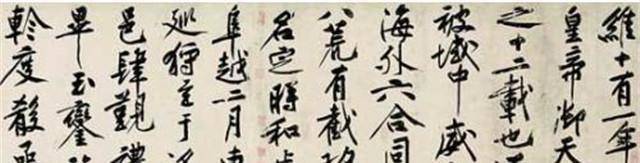 維十有一年
皇帝御天
之十二載也
被域中威
海外六合同
八荒有截
名定時和
阜越二月
廵狩至于
邑肆覲禮
畢玉鑾
軫度殽